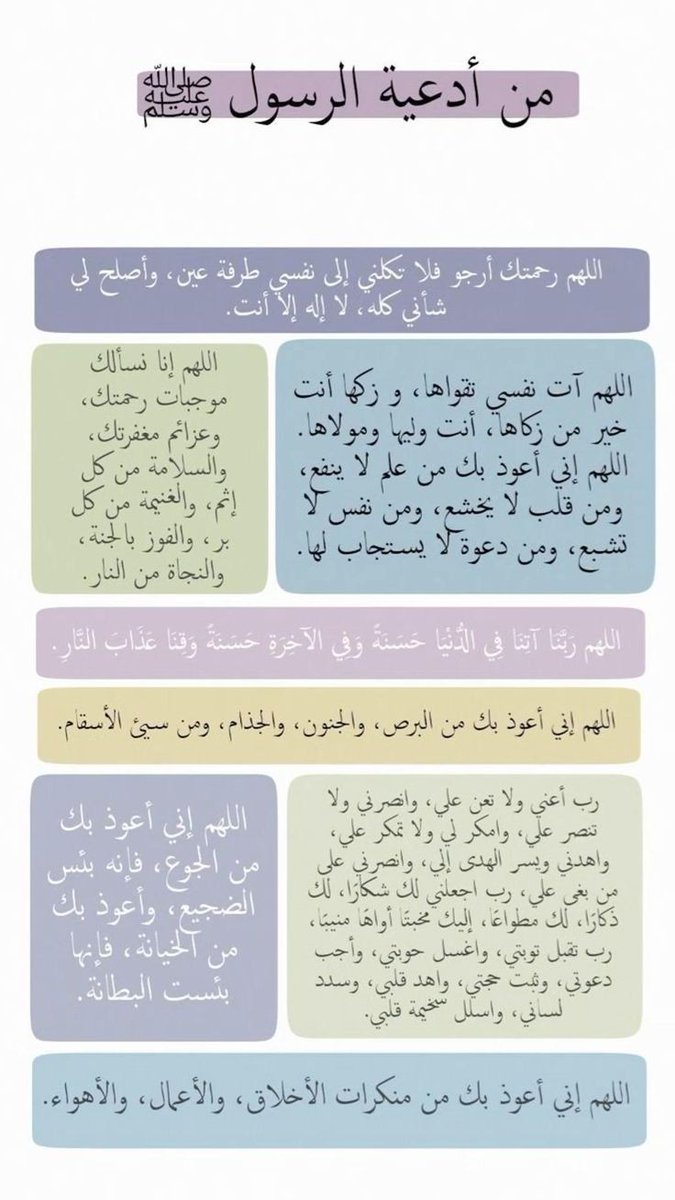 من أدعية الرسول ﷺ
اللهم رحمتك أرجو فلا تكلني إلى نفسي طرفة عين، وأصلح لي
شأني كله، لا إله إلا أنت.
اللهم آت نفسي تقواها، و زكها أنت
خير من زكاها، أنت وليها ومولاها.
اللهم إني أعوذ بك من علم لا ينفع،
ومن قلب لا يخشع، ومن نفس لا
تشبع، ومن دعوة لا يستجاب لها.
اللهم إنا نسألك
موجبات رحمتك،
وعزائم مغفرتك،
والسلامة من كل
إثم، والغنيمة من كل
بر، والفوز بالجنة،
والنجاة من النار.
اللهم رَبَّنَا آتِنَا فِي الدُّنْيَا حَسَنَةً وَفِي الآخِرَةِ حَسَنَةً وَقِنَا عَذَابَ النَّارِ.
اللهم إني أعوذ بك من البرص، والجنون، والجذام، ومن سيئ الأسقام.
رب أعني ولا تعن علي، وانصرني ولا
تنصر علي، وامكر لي ولا تمكر علي،
واهدني ويسر الهدى إلي، وانصرني على
من بغى علي، رب اجعلني لك شكارًا، لك
ذكارًا، لك مطواعًا، إليك مخبتًا أواهًا منيبًا،
رب تقبل توبتي، واغسل حوبتي، وأجب
دعوتي، وثبت حجتي، واهد قلبي، وسدد
لساني، واسلل سخيمة قلبي.
اللهم إني أعوذ بك
من الجوع، فإنه بئس
الضجيع، وأعوذ بك
من الخيانة، فإنها
بئست البطانة.
اللهم إني أعوذ بك من منكرات الأخلاق، والأعمال، والأهواء.